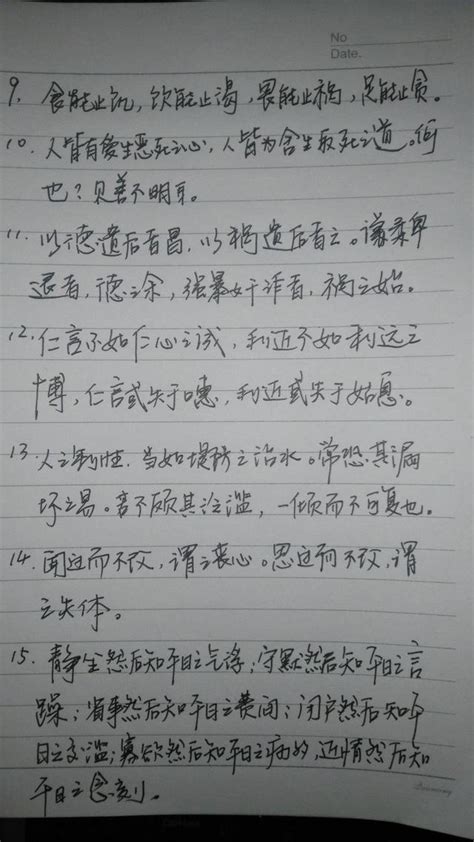 No
Date.
9. 食能止饥, 饮能止渴, 畏能止祸, 足能止贪。
10. 人皆有爱生恶死之心, 人皆为舍生取死之道。何
也? 见善不明耳。
11. 以德遗后者昌, 以祸遗后者亡。谦柔卑
退者, 德之余, 强暴奸诈者, 祸之始。
12. 仁言不如仁心之诚, 利近不如利远之
博, 仁言或失于口惠, 利近或失于姑息。
13. 人之制性, 当如堤防之治水。常恐其漏
坏之易。若不顾其泛滥, 一倾而不可复也。
14. 闻过而不改, 谓之丧心。思过而不改, 谓
之失体。
15. 静坐然后知平日之气浮; 守默然后知平日之言
躁; 省事然后知平日之费间; 闭户然后知平
日之交滥; 寡欲然后知平日之病的, 近情然后知
平日之念刻。